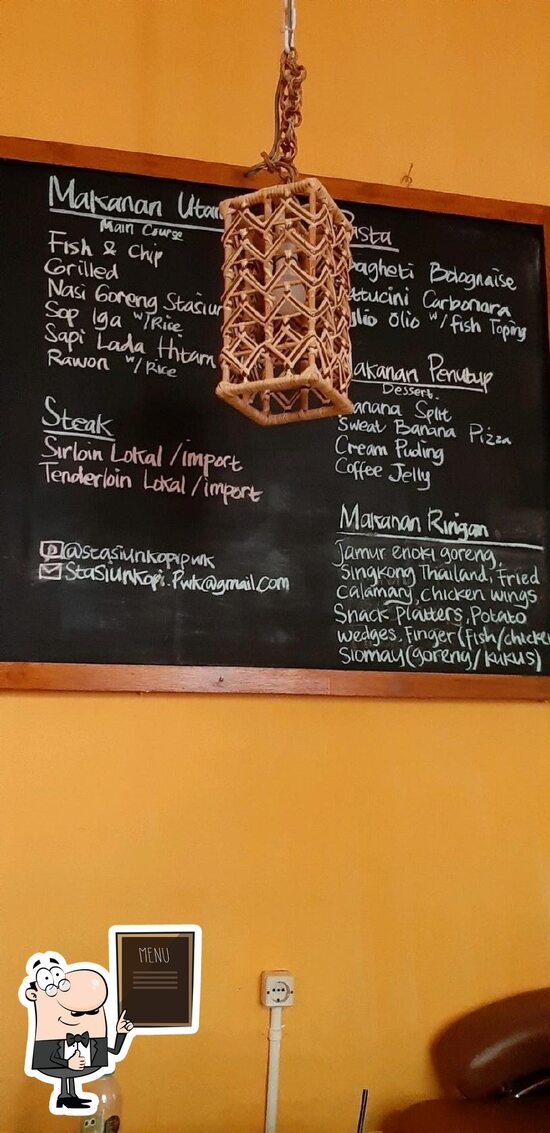 Makanan
Main Course
Fish & Chip
Grilled
Nasi Goreng
Sop Iga w/Rice
Sapi Lada Hitam
Rawon w/Rice
Steak
Sirloin Lokal /import
Tenderloin Lokal /import
@stasiunkopipwk
Stasiunkopi.Pwk@gmail.com
Bolognaise
Carbonara
olio w/fish Toping
Penutup
Dessert
Split
Sweat Banana Pizza
Cream Puding
Coffee Jelly
Makanan Ringan
Jamur enoki goreng,
Singkong Thailand, Fried
Calamary, chicken wings
Snack Platters, Potato
wedges. Finger (fish/chicken
Siomay (goreng/kukus)
MENU